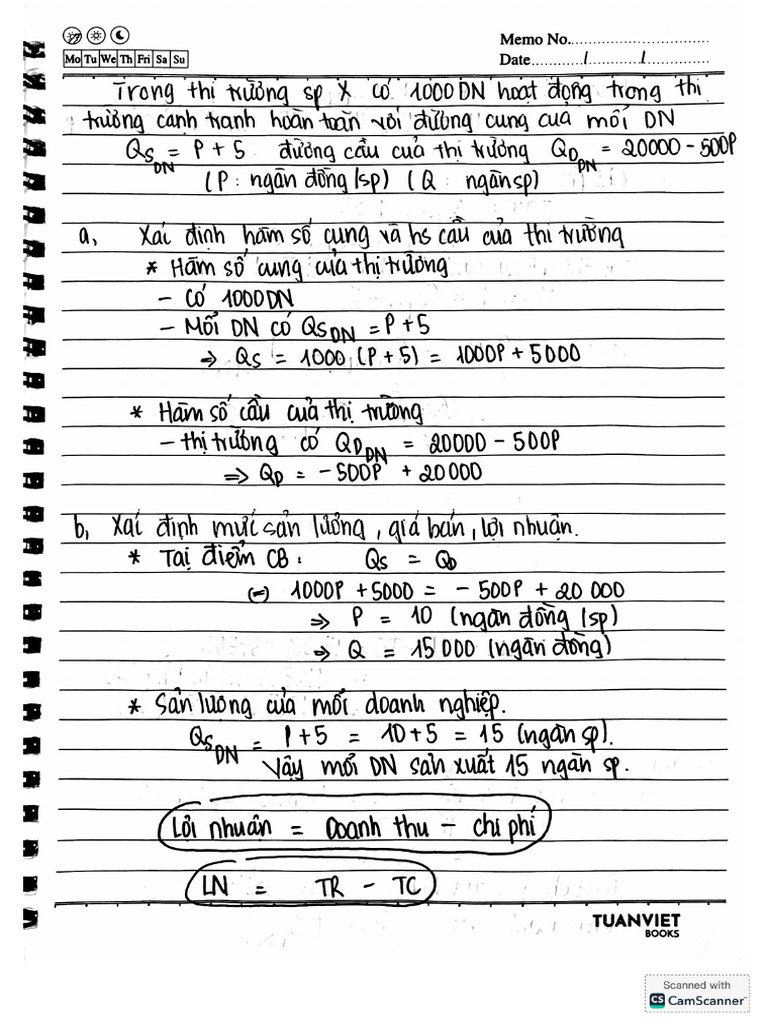 Memo No.
Mo Tu We Th Fri Sa Su
Date / /
Trong thi trường sp X có 1000DN hoạt động trong thi
trường cạnh tranh hoàn toàn với đường cung của mỗi DN
QS_DN = P + 5 đường cầu của thi trường QD_DN = 20000 - 500P
(P : ngàn đồng /sp) (Q : ngàn sp)
a, Xác định hàm số cung và hs cầu của thi trường
* Hàm số cung của thị trường
- Có 1000DN
- Mỗi DN có QS_DN = P + 5
⇒ QS = 1000 (P + 5) = 1000P + 5000
* Hàm số cầu của thị trường
- thị trường có QD_DN = 20000 - 500P
⇒ QD = - 500P + 20000
b, Xác định mức sản lượng, giá bán, lợi nhuận.
* Tại điểm CB : QS = QD
(=) 1000P + 5000 = - 500P + 20 000
⇒ P = 10 (ngàn đồng /sp)
⇒ Q = 15 000 (ngàn đồng)
* Sản lượng của mỗi doanh nghiệp.
QS_DN = P + 5 = 10 + 5 = 15 (ngàn sp).
Vậy mỗi DN sản xuất 15 ngàn sp.
Lợi nhuận = Doanh thu - chi phí
LN = TR - TC
TUANVIET
BOOKS
Scanned with
CS CamScanner